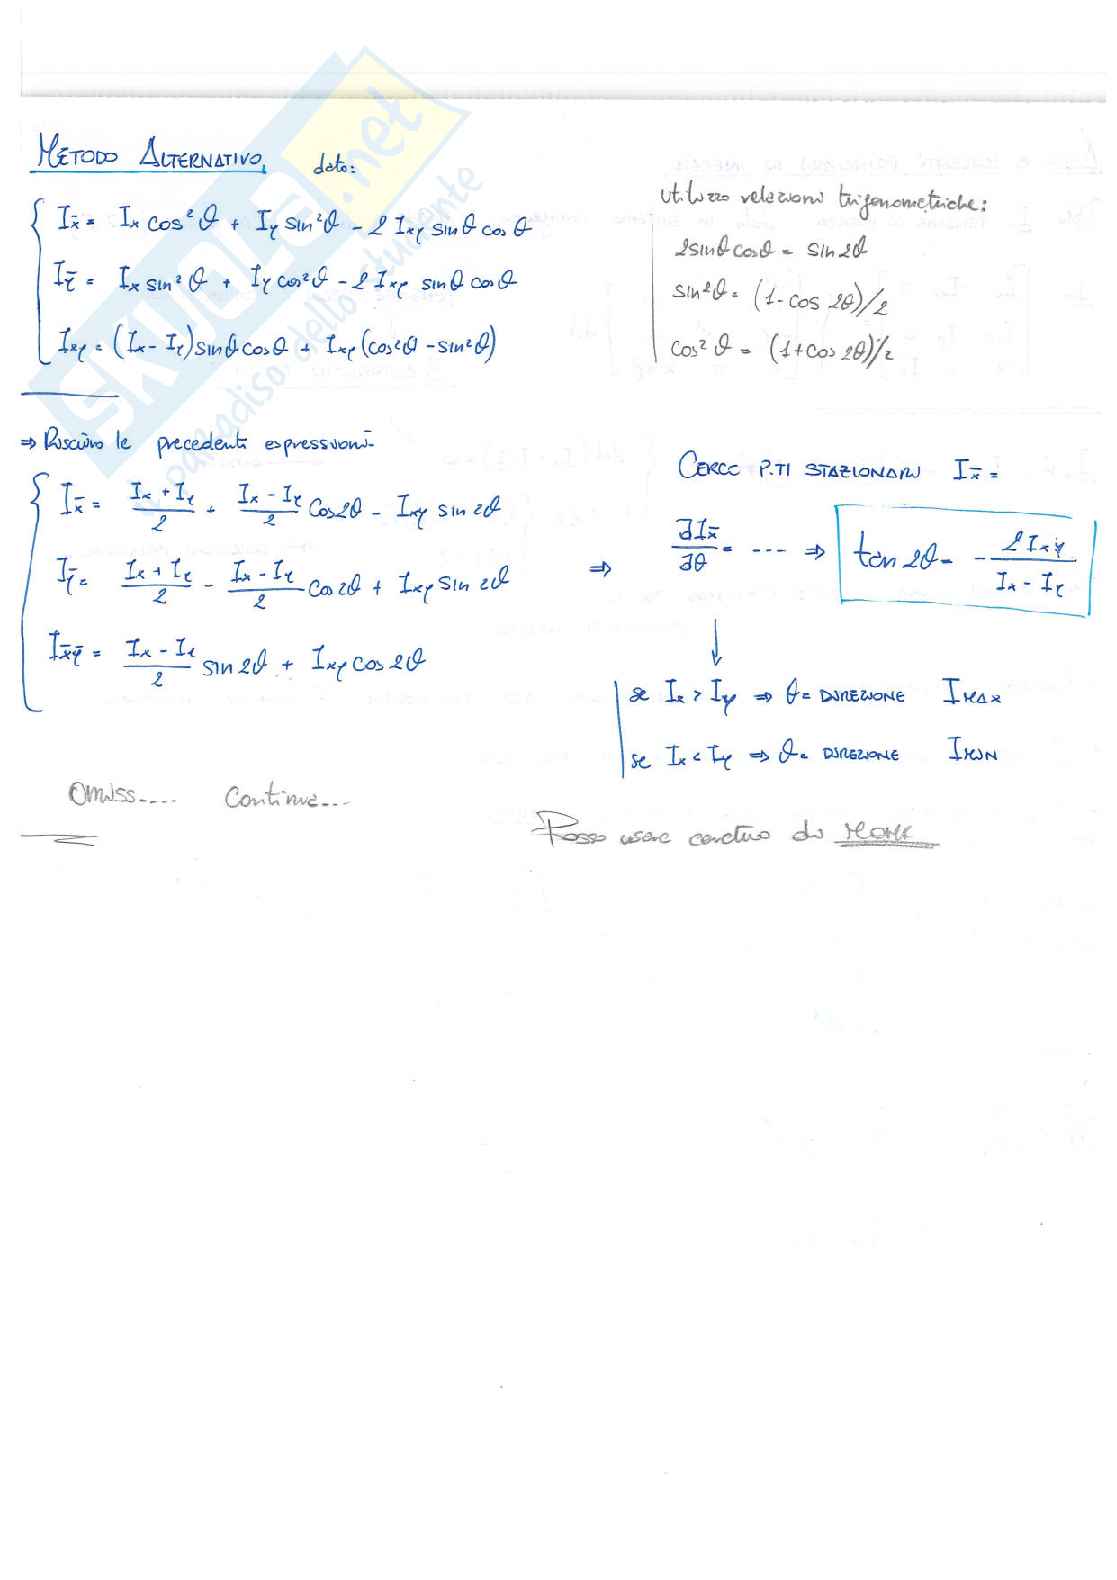 METODO ALTERNATIVO, dato:
I_x̄ = I_x cos² θ + I_y sin² θ - 2 I_xy sin θ cos θ
I_ȳ = I_x sin² θ + I_y cos² θ - 2 I_xy sin θ cos θ
I_xy = (I_x - I_y) sin θ cos θ + I_xy (cos² θ - sin² θ)
Utilizzo relazioni trigonometriche:
2 sin θ cos θ = sin 2θ
sin² θ = (1 - cos 2θ)/2
cos² θ = (1 + cos 2θ)/2
⇒ Riscrivo le precedenti espressioni
I_x̄ = (I_x + I_y)/2 + (I_x - I_y)/2 cos 2θ - I_xy sin 2θ
I_ȳ = (I_x + I_y)/2 - (I_x - I_y)/2 cos 2θ + I_xy sin 2θ ⇒
I_x̄ȳ = (I_x - I_y)/2 sin 2θ + I_xy cos 2θ
CERCO P.TI STAZIONARI I_x̄ =
∂I_x̄/∂θ = ---- ⇒ tan 2θ = - 2 I_xy/(I_x - I_y)
↓
se I_x > I_y ⇒ θ = DIREZIONE I MAX
se I_x < I_y ⇒ θ = DIREZIONE I MIN
OMISS.---- Continua---
Posso usare cerchio di MOHR
SKUOLA.net
il paradiso dello studente